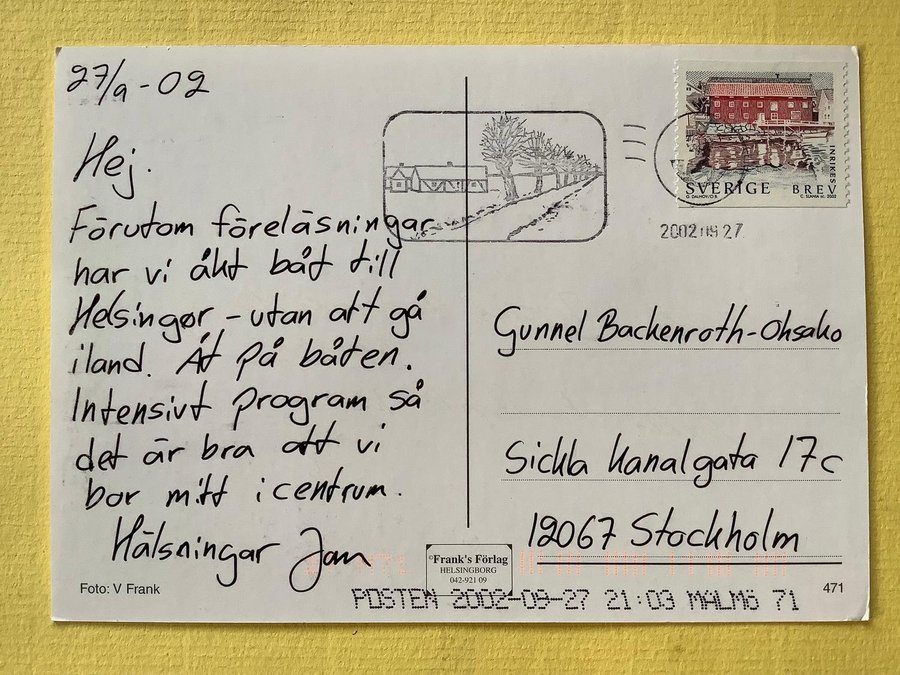 27/9-02
Hej.
Förutom föreläsningar
har vi åkt båt till
Helsingør – utan att gå
iland. Åt på båten.
Intensivt program så
det är bra att vi
bor mitt i centrum.
Hälsningar Jan
Foto: V Frank
©Frank's Förlag
HELSINGBORG
042-921 09
SVERIGE BREV
INRIKES
2002 09 27
Gunnel Backenroth-Ohsako
Sickla Kanalgata 17c
12067 Stockholm
471
POSTEN 2002-09-27 21:03 MALMÖ 71